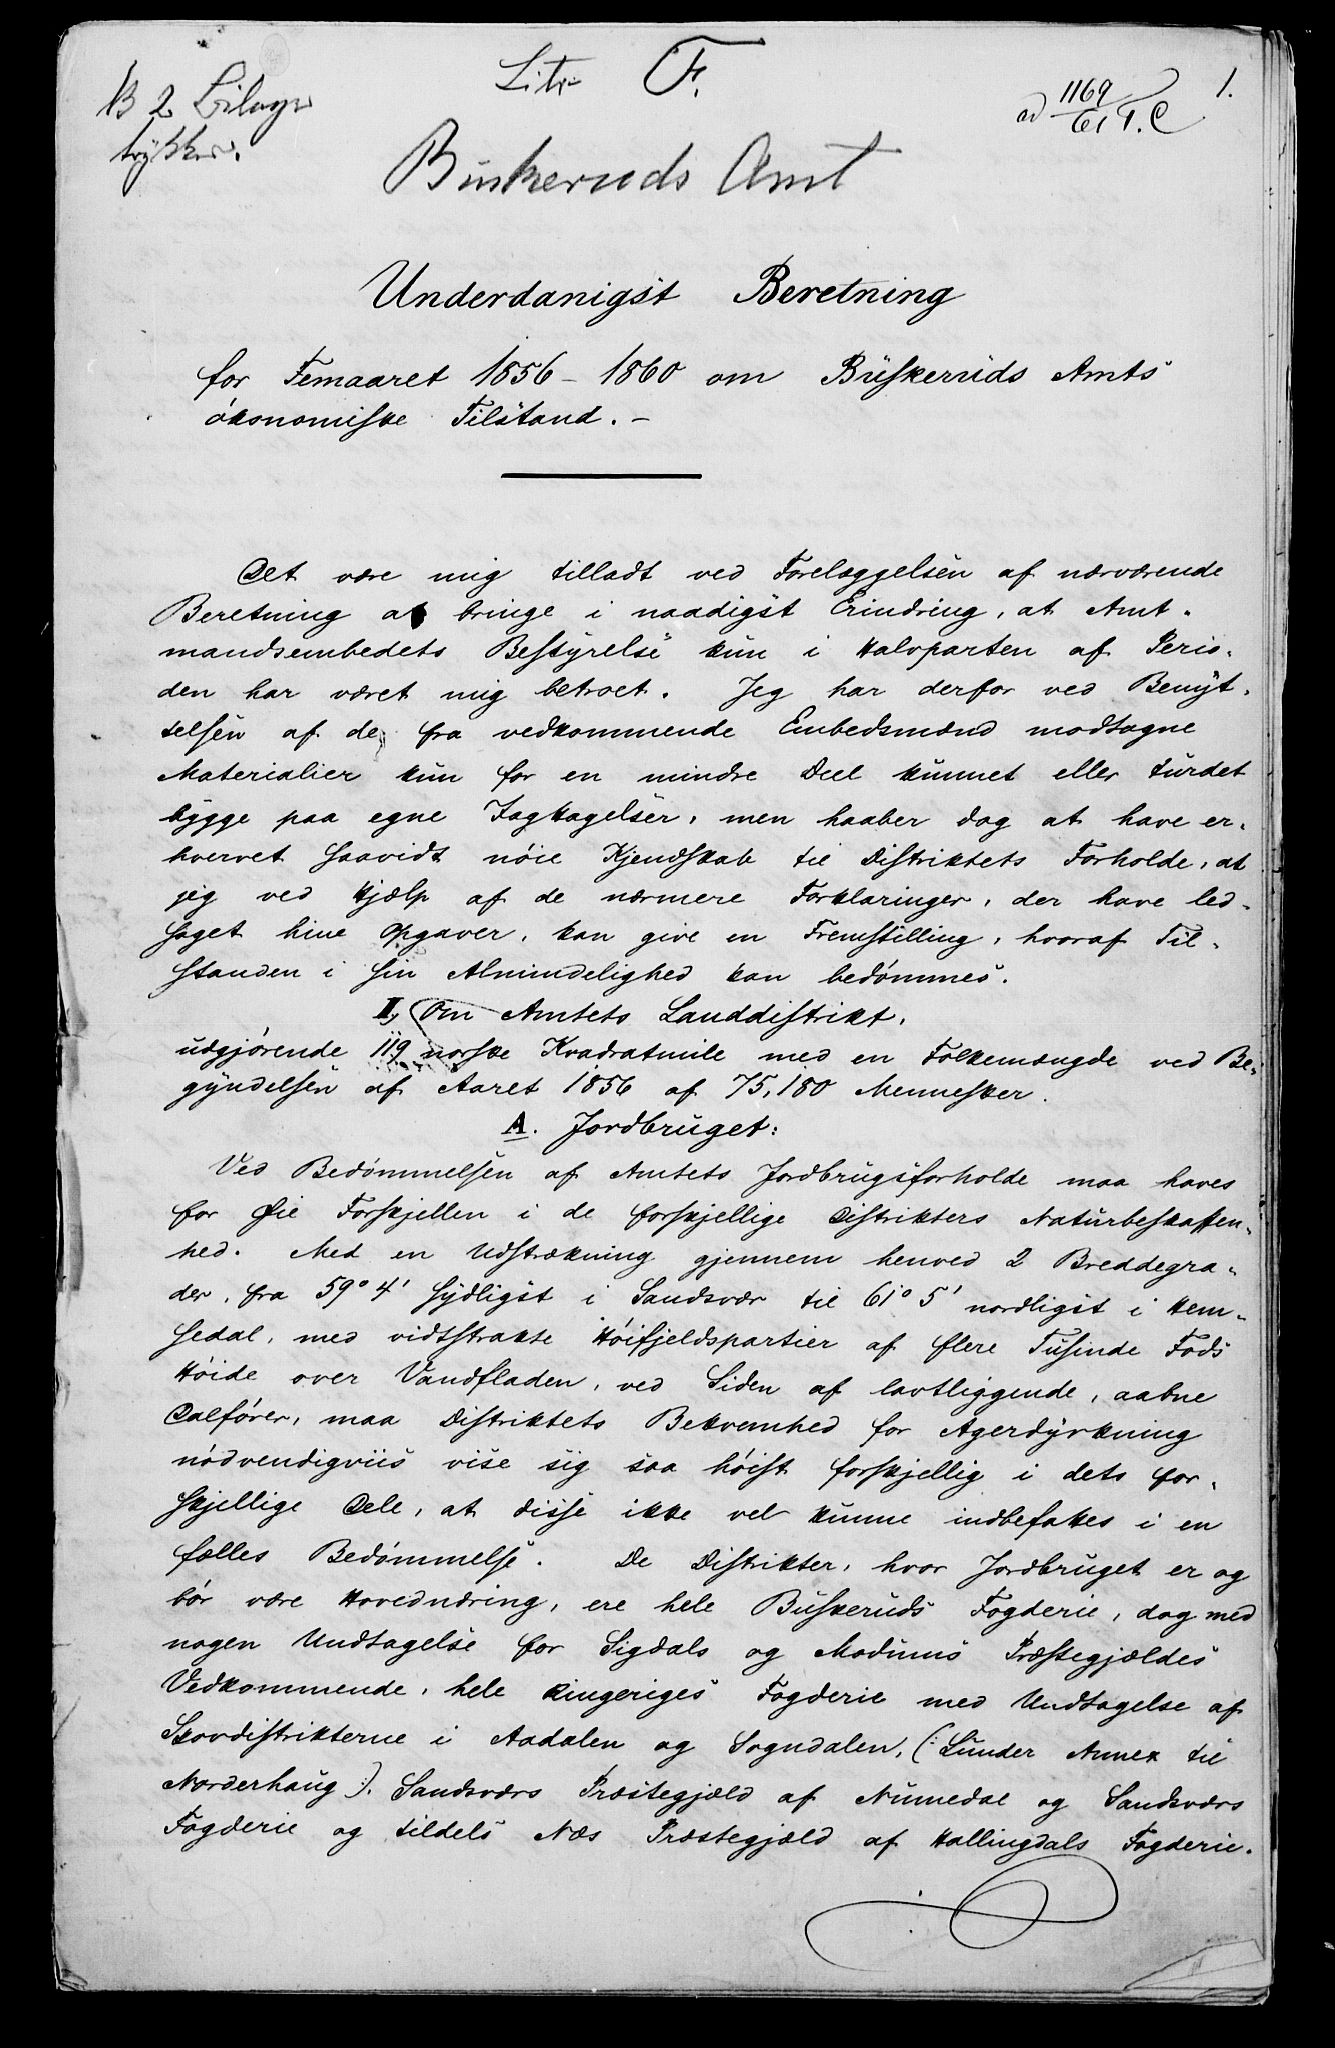 B 2 Bilage
trykkes.
Litr F.
ad 1169/61 T. C
1.
Buskeruds Amt
Underdanigst Beretning
for Femaaret 1856 - 1860 om Buskeruds Amts
økonomiske Tilstand. -
Det være mig tilladt ved Forelæggelsen af nærværende
Beretning at bringe i naadigst Erindring, at Amt-
mandsembedets Bestyrelse kun i Halvparten af Perio-
den har været mig betroet. Jeg har derfor ved Benyt-
telsen af de fra vedkommende Embedsmænd modtagne
Materialier kun for en mindre Deel kunnet eller turdet
bygge paa egne Iagttagelser, men haaber dog at have er-
hvervet saavidt nøie Kjendskab til Distriktets Forholde, at
jeg ved Hjælp af de nærmere Forklaringer, der have led-
saget hine Opgaver, kan give en Fremstilling, hvoraf Til-
standen i sin Almindelighed kan bedømmes.
I, Om Amtets Landdistrikt,
udgjørende 119 norske Kvadratmile med en Folkemængde ved Be-
gyndelsen af Aaret 1856 af 75,180 Mennesker.
A. Jordbruget:
Ved Bedømmelsen af Amtets Jordbrugsforholde maa haves
for Øie Forskjellen i de forskjellige Distrikters Naturbeskaffen-
hed. Med en Udstrækning gjennem henved 2 Breddegra-
der, fra 59° 4' sydligst i Sandsvær til 61° 5' nordligst i Hem-
sedal, med vidtstrakte Høifjeldspartier af flere Tusinde Fods
Høide over Vandfladen, ved Siden af lavtliggende, aabne
Dalfører, maa Distriktets Bekvemhed for Agerdyrkning
nødvendigviis vise sig saa høist forskjellig i dets for-
skjellige Dele, at disse ikke vel kunne indbefattes i en
fælles Bedømmelse. De Distrikter, hvor Jordbruget er og
bør være Hovednæring, ere hele Buskeruds Fogderie, dog med
nogen Undtagelse for Sigdals og Modums Præstegjældes
Vedkommende, hele Ringeriges Fogderie med Undtagelse af
Skovdistrikterne i Aadalen og Sogndalen, (: Lunder Annex til
Norderhaug :). Sandsværs Præstegjæld af Numedal og Sandsværs
Fogderie og tildels Næs Præstegjæld af Hallingdals Fogderie.